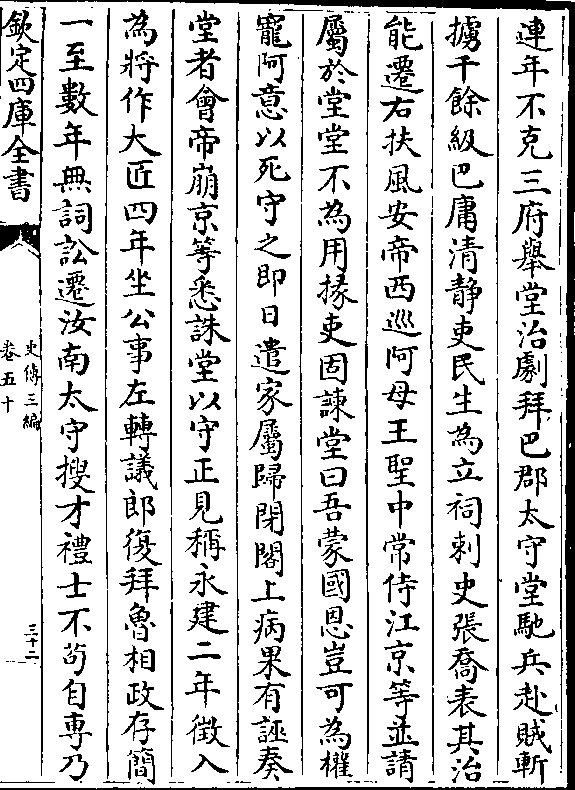 連年不克三府舉堂治劇拜巴郡太守堂馳兵赴賊斬
擄千餘級巴庸清静吏民生為立祠刺史張喬表其治
能遷右扶風安帝西巡阿母王聖中常侍江京等並請
屬於堂堂不為用掾吏固諫堂曰吾蒙國恩豈可為權
寵阿意以死守之即日遣家屬歸閉閣上病果有誣奏
堂者會帝崩京等悉誅堂以守正見稱永建二年徴入
為將作大匠四年坐公事左轉議郎復拜魯相政存簡
一至數年無詞訟遷汝南太守搜才禮士不苟自専乃
欽定四庫全書
史傳三編
卷五十
三十二